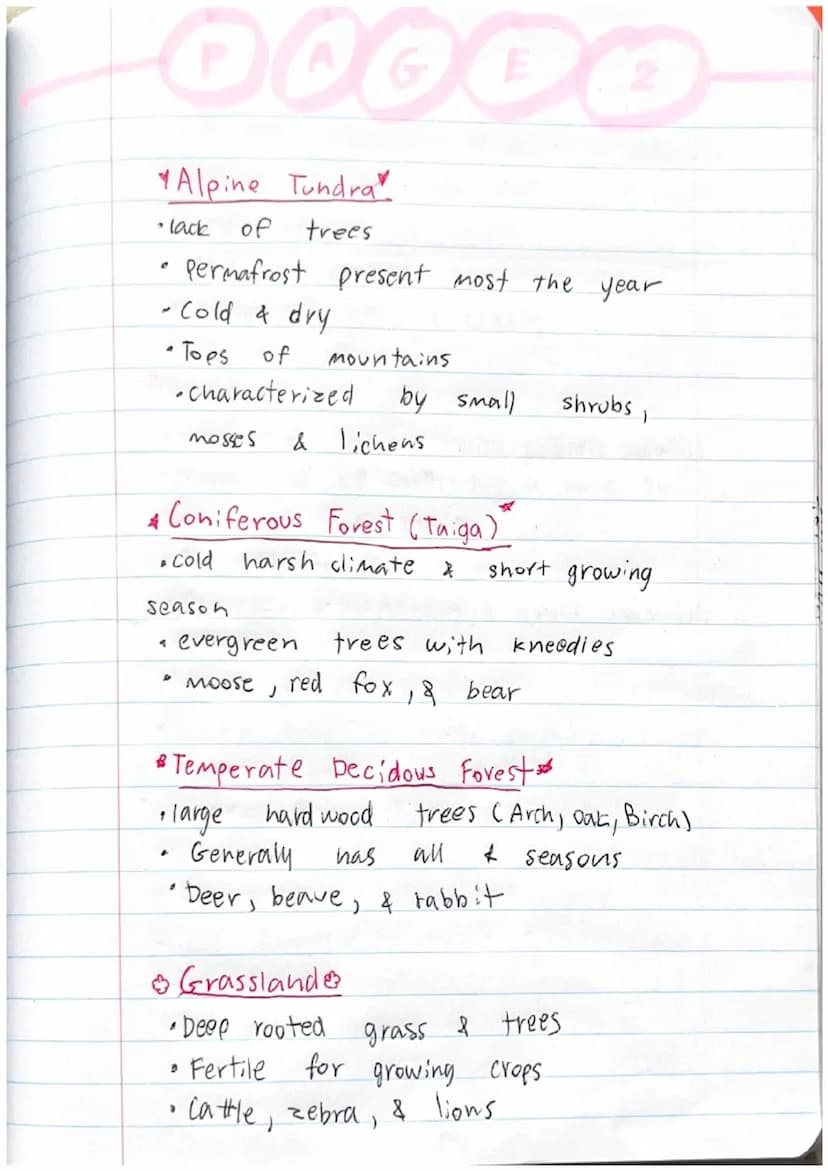 PAGE 2
Alpine Tundra
• lack of trees
• Permafrost present most the year
- Cold & dry
• Tops of mountains
• characterized by small shrubs,
mosses & lichens
Coniferous Forest (Taiga)
• cold harsh climate & short growing
season
• evergreen trees with kneedies
• Moose, red fox, & bear
Temperate Decidous Forest
• large hardwood trees (Arch, Oak, Birch)
• Generaly has all 4 seasons
• Deer, beave, & rabbit
Grassland
• Deep rooted grass & trees
• Fertile for growing crops
• Cattle, zebra, & lions